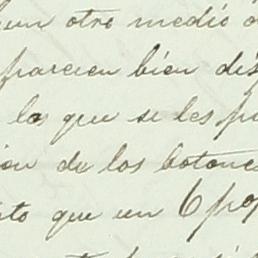 un otro medio
parecen bien des
los que se les p
ion de los botone
to que un 6 po